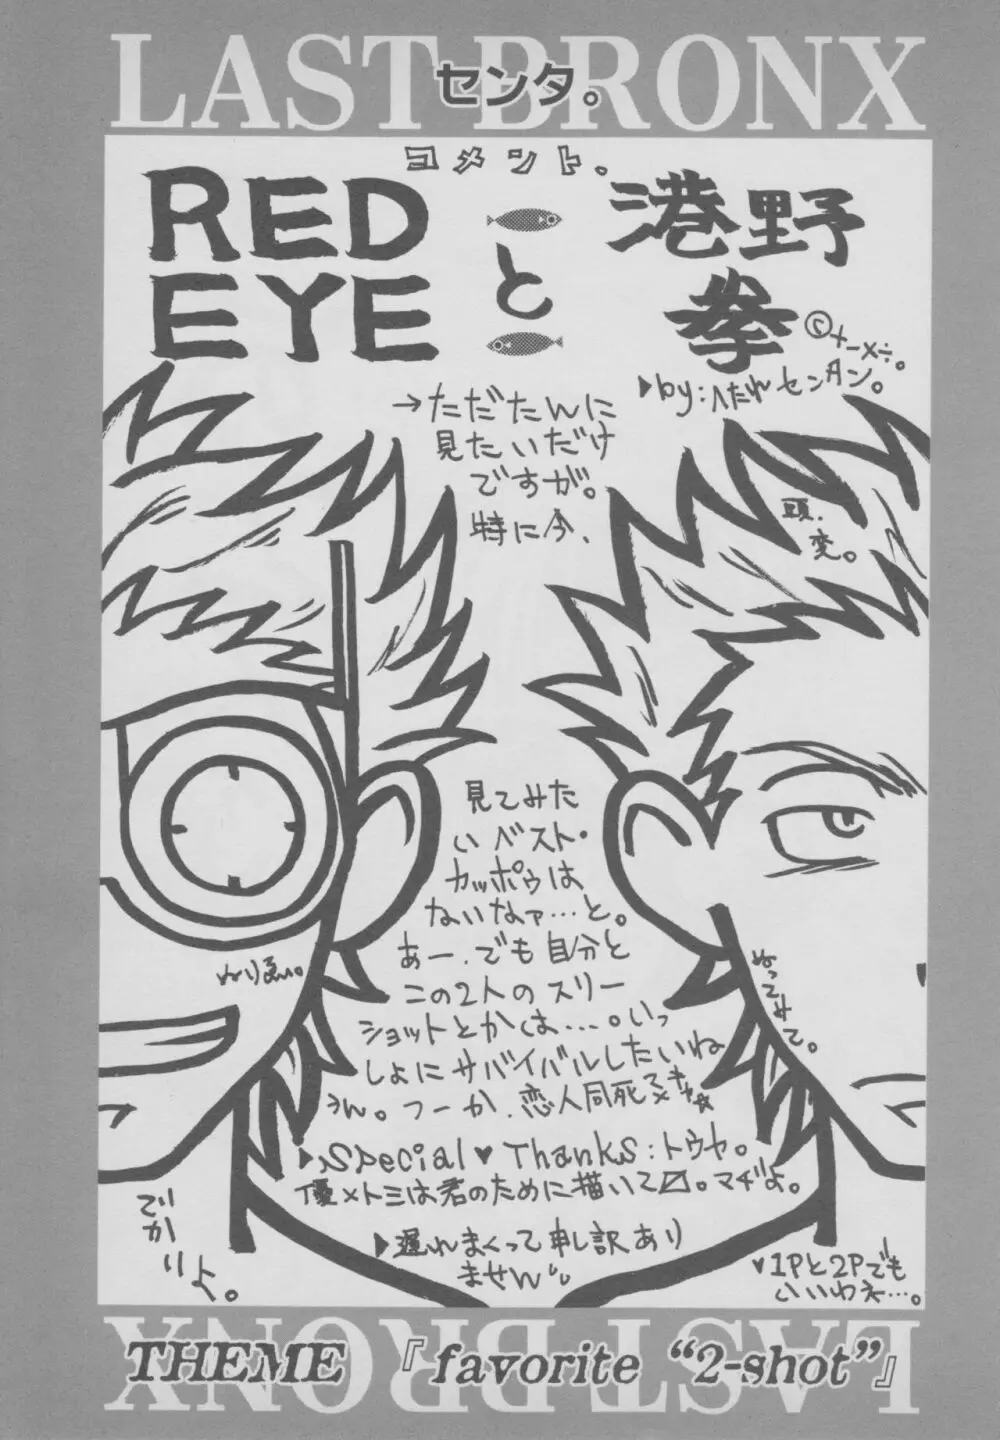 LAST BRONX
センタ。
コメント.
RED EYE
と
港野拳
by:へたれセンタン。
→ただたんに
見たいだけ
ですが。
特に今、
頭、
変。
見てみた
いベスト・
カッポゥは
ないなァ…と。
あー.でも自分と
この2人のスリー
ショットとかは…。いっ
しょにサバイバルしたいね
うん。つーか.恋人同死
ぬってみて。
▶Special♥Thanks:トウヤ。
優×トミは君のために描いて〼。マヂよ。
▶遅れまくって申し訳あり
ません
でかりよ。
♥1Pと2Pでも
いいわネ…。
LAST BRONX
THEME 『favorite “2-shot”』